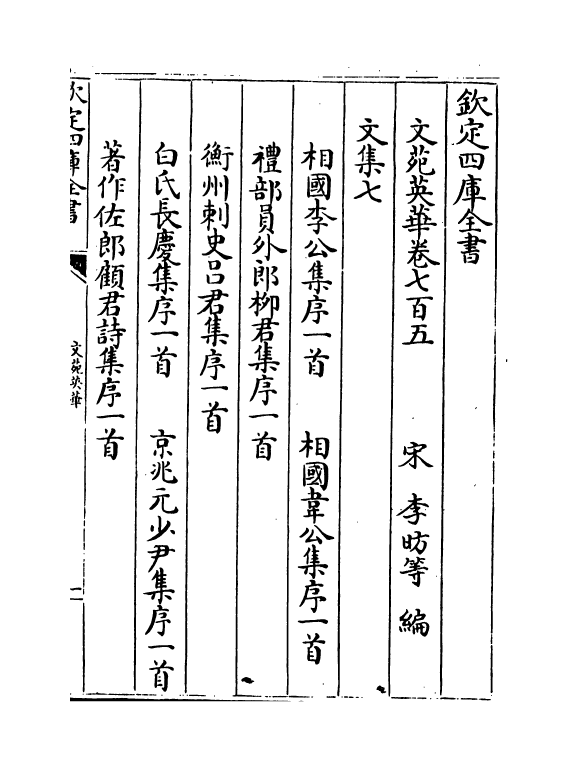 欽定四庫全書
文苑英華卷七百五　宋　李昉等　編
文集七
相國李公集序一首　相國韋公集序一首
禮部員外郎柳君集序一首
衡州刺史呂君集序一首
白氏長慶集序一首　京兆元少尹集序一首
著作佐郎顧君詩集序一首
欽定四庫全書
文苑英華